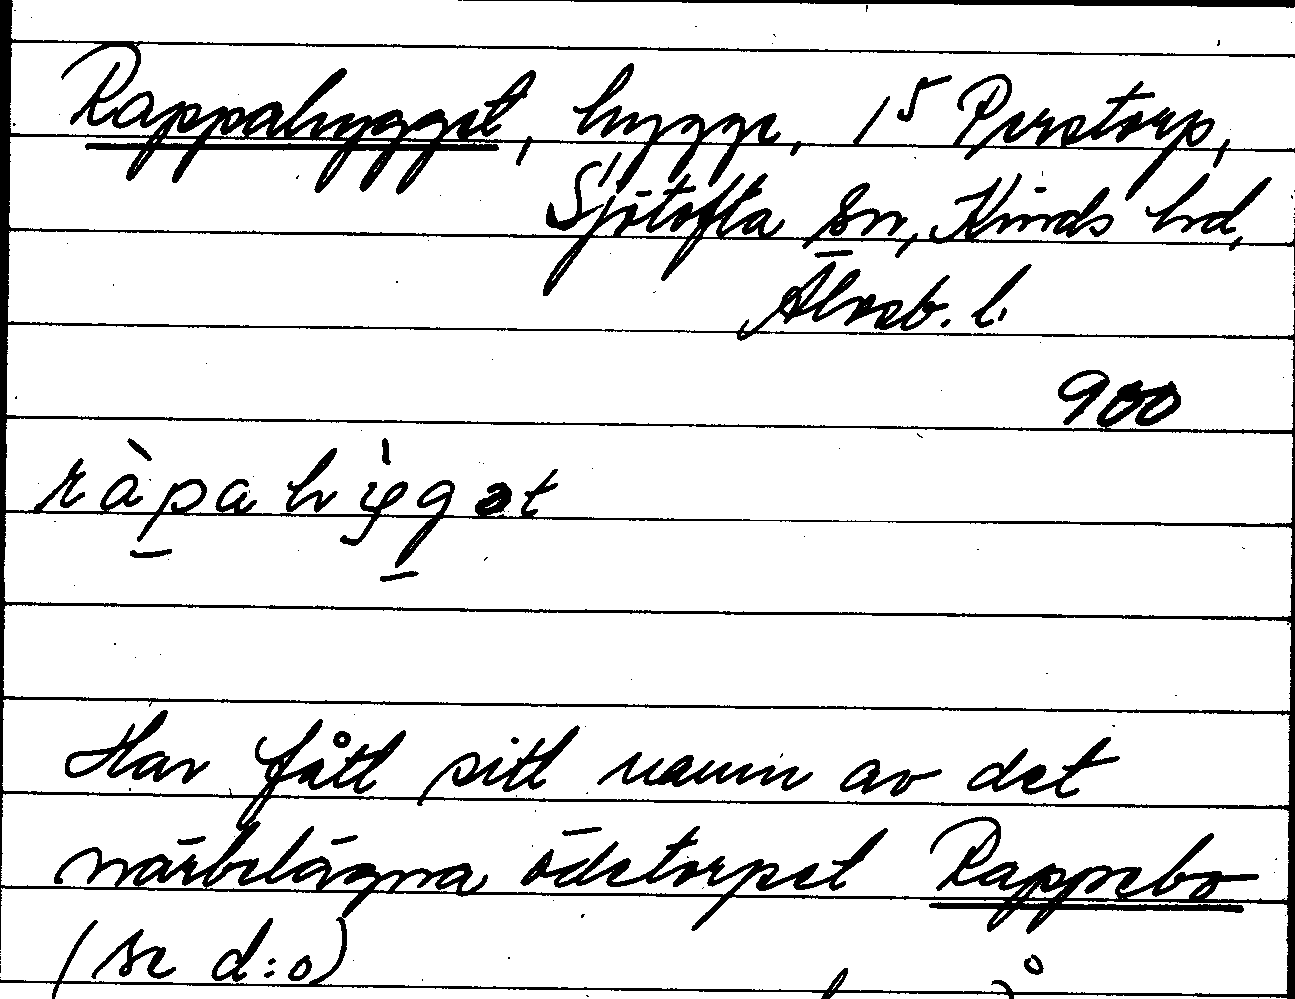 Rappahygget, hygge, 1⁵ Perstorp,
Sjötofta sn, Kinds hd,
Älvsb. l.
900
ràpahỳgət
Har fått sitt namn av det
närbelägna ödetorpet Rappebo
(se d:o)